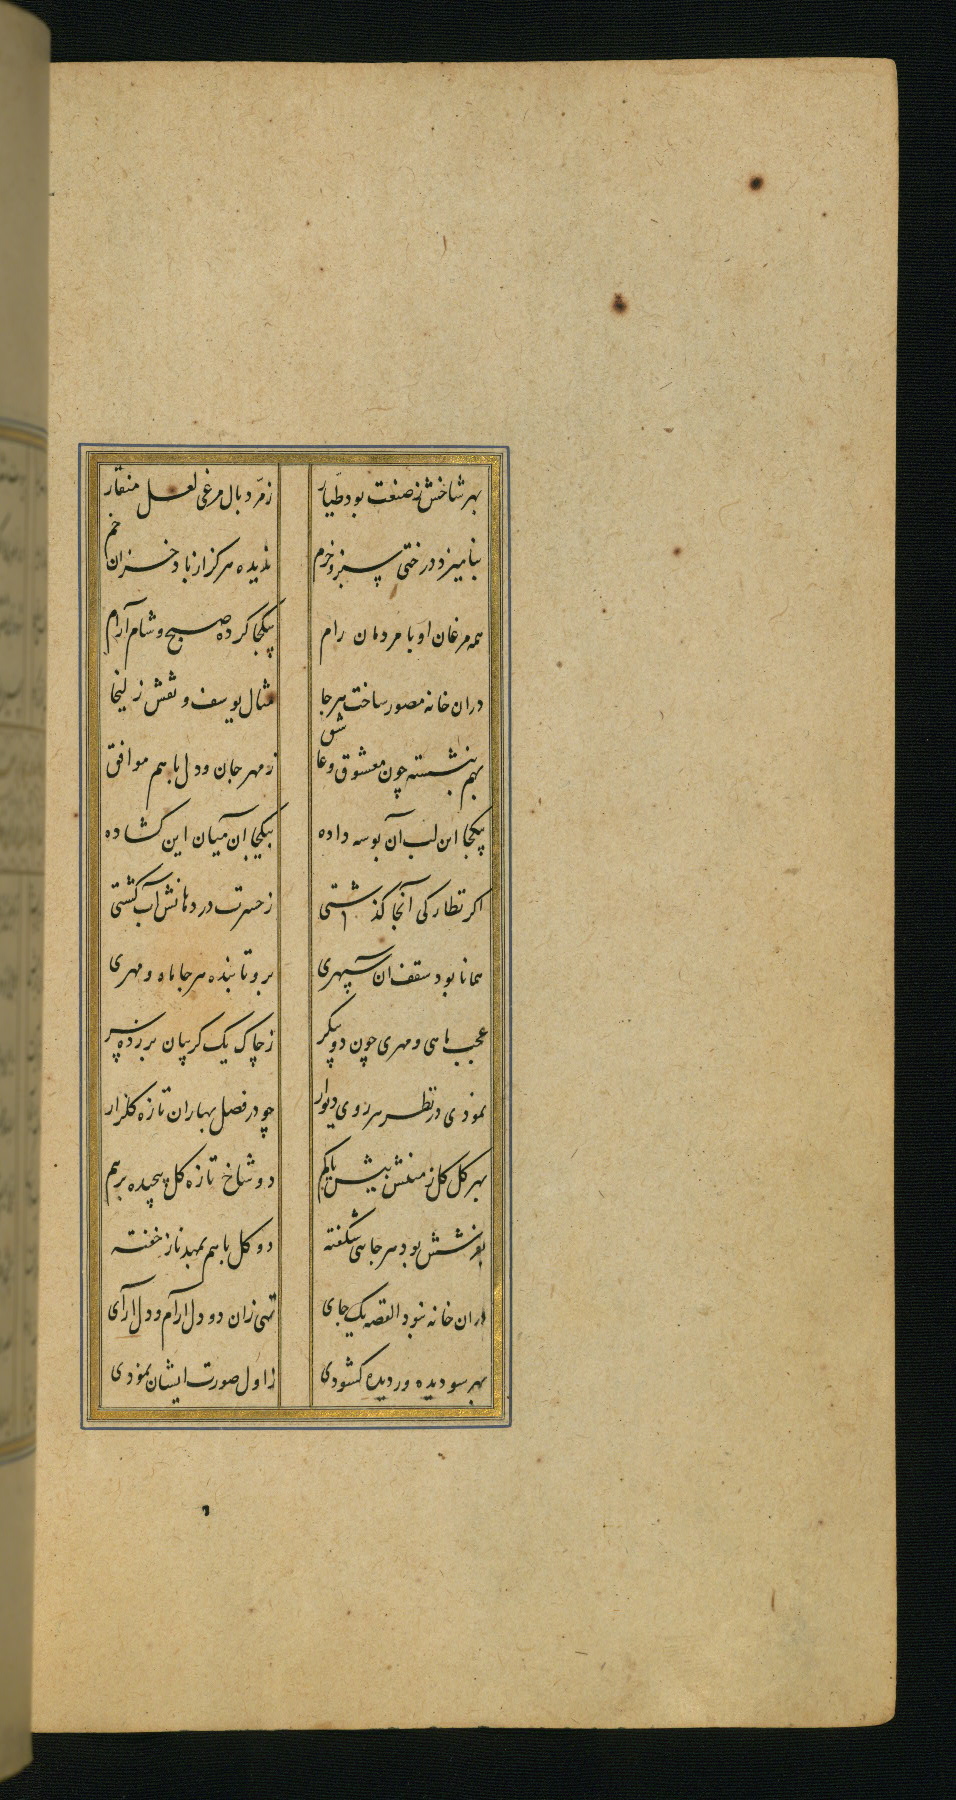 بهر شاخش ز صنعت بود طیار زمرّد بال مرغی لعل منقار
بنامیزد درختی سبز و خرم ندیده هرکز از باد خزان خم
همه مرغان او با مردمان رام بیکجا کرده صبح و شام آرام
دران خانه مصور ساخت هر جا مثال یوسف و نقش زلیخا
بهم بنشسته چون معشوق و عاشق ز مهر جان و دل با هم موافق
بیکجا این لب آن بوسه داده بیکجا آن میان این کشاده
اکر نظارکی آنجا کذشتی ز حسرت در دهانش آب کشتی
همانا بود سقف آن سپهری برو تابنده هر جا ماه و مهری
عجب ماهی و مهری چون دو پیکر ز چاک یک کریبان بر زده سر
نمودی در نظر هر روی دیوار چو در فصل بهاران تازه کلزار
بهر کل کل زمینش بیش یا کم دو شاخ تازه کل پیچیده بر هم
بفرشش بود هر جایی شکفته دو کل با هم بمهد ناز خفته
دران خانه نبود القصه یک جای تهی زان دو دلارام و دلارای
بهر سو دیده ور دیده کشودی ز اول صورت ایشان نمودی